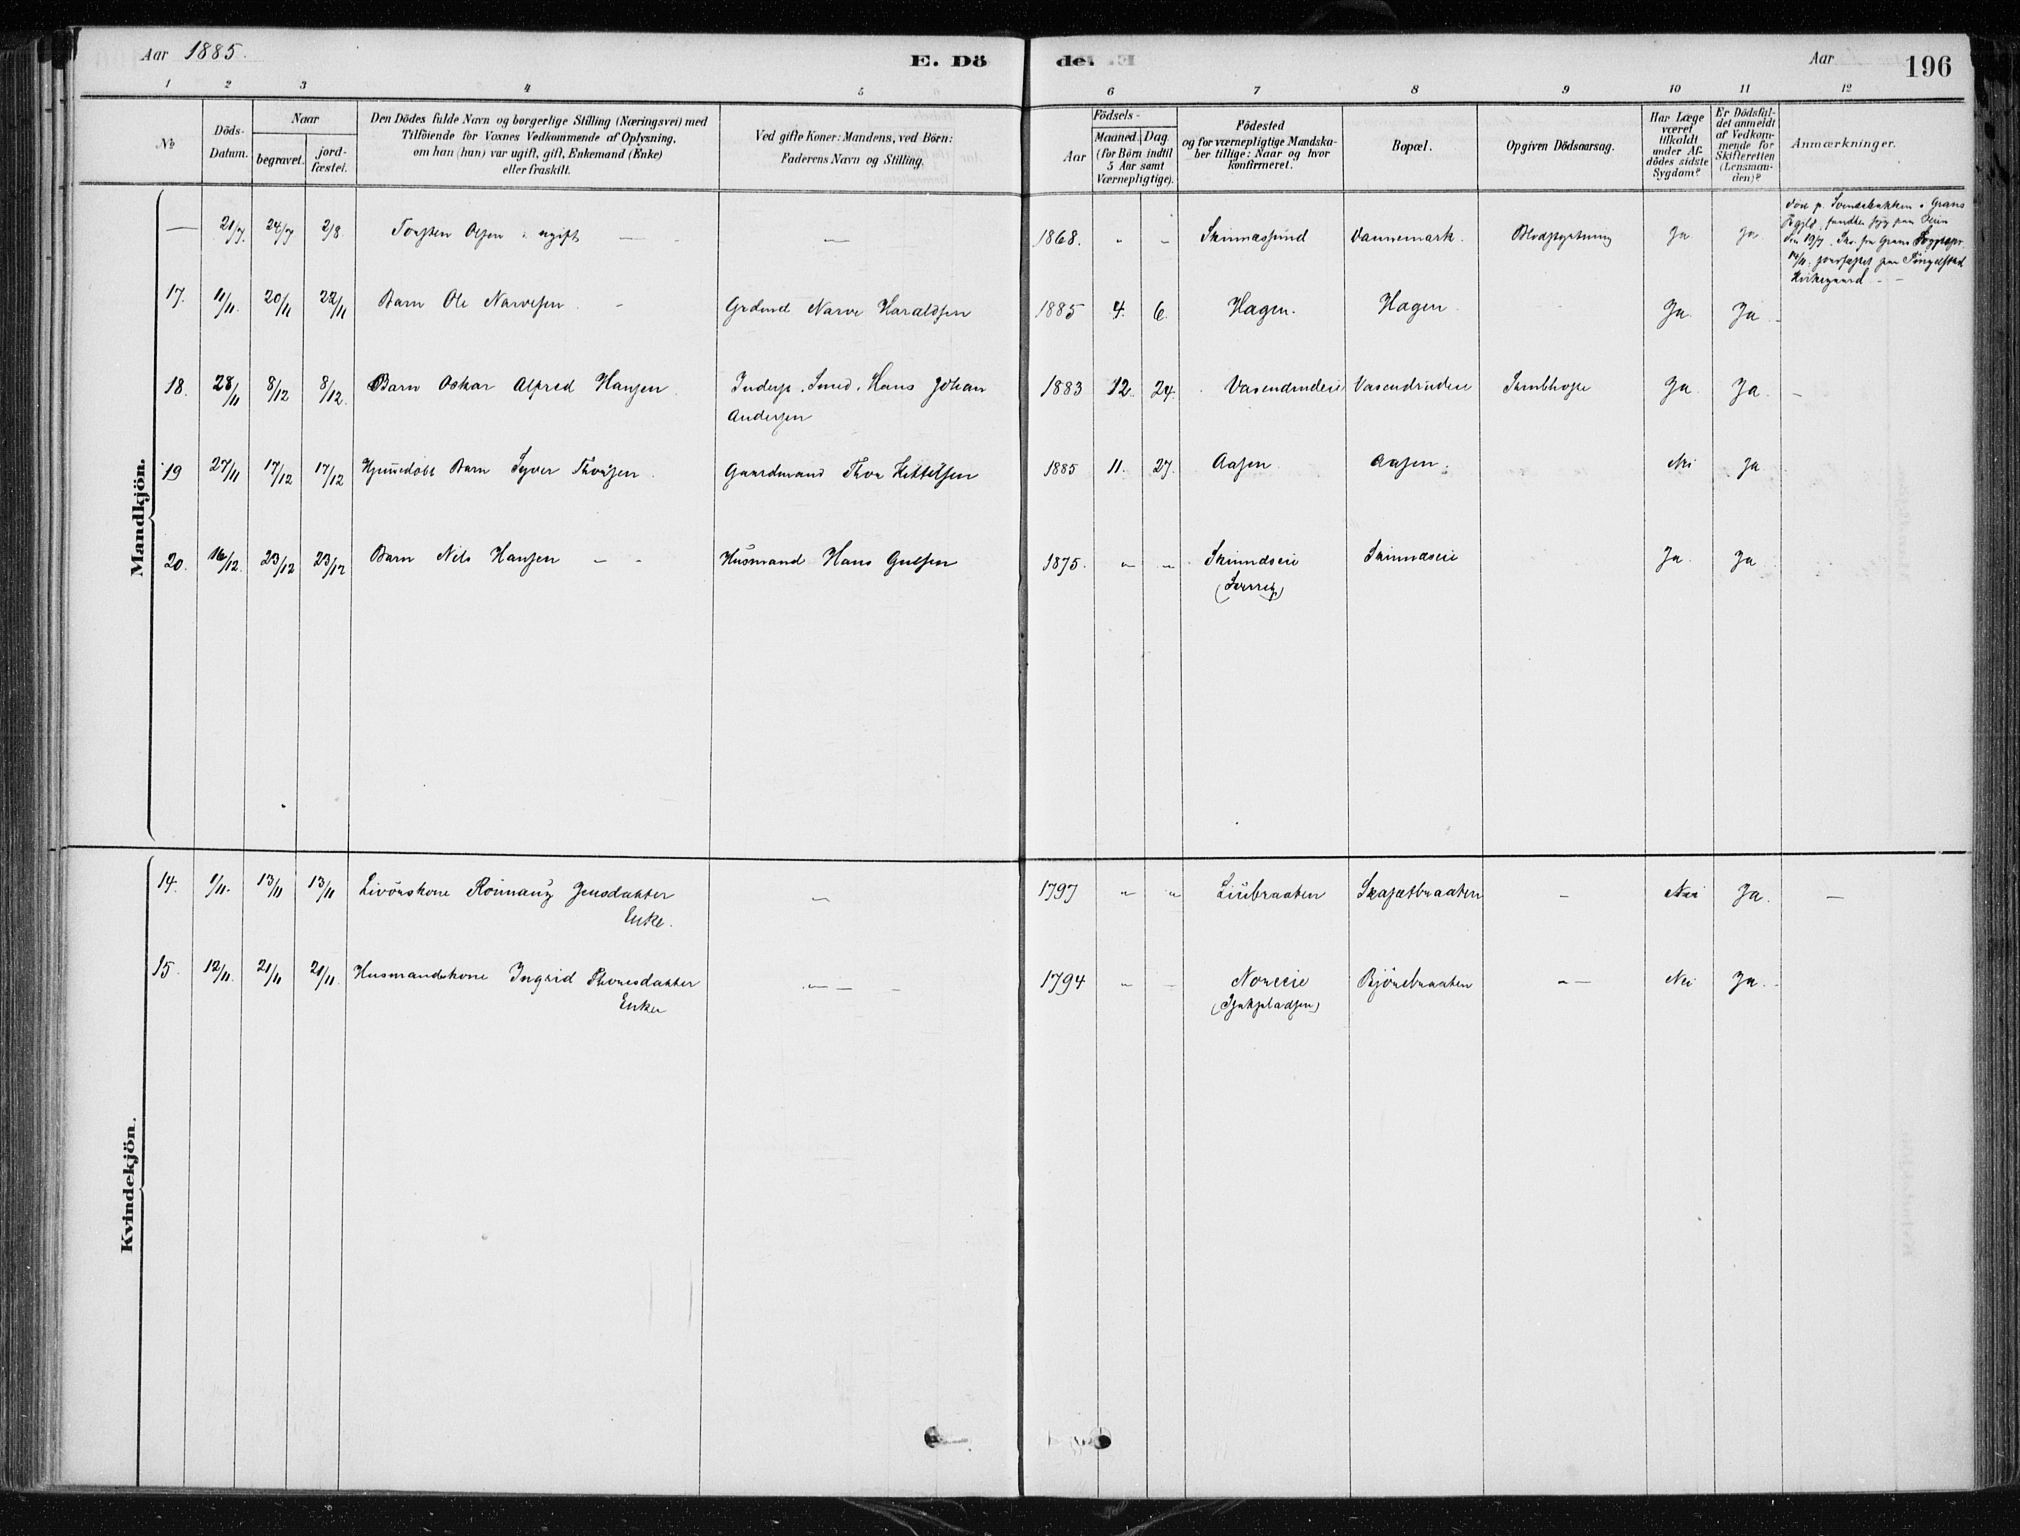 Aar 1885.
E. Dö
de.
Aar
196
1 2 3 4 5 6 7 8 9 10 11 12
No
Döds-
Datum.
Naar
begravet.
jord-
fæstet.
Den Dödes fulde Navn og borgerlige Stilling (Næringsvei) med
Tilföiende for Voxnes Vedkommende af Oplysning,
om han (hun) var ugift, gift, Enkemand (Enke)
eller fraskilt.
Ved gifte Koner: Mandens, ved Börn:
Faderens Navn og Stilling.
Födsels-
Aar
Maaned. Dag.
(for Börn indtil
5 Aar samt
Værnepligtige).
Födested
og for værnepligtige Mandska-
ber tillige: Naar og hvor
konfirmeret.
Bopæl.
Opgiven Dödsaarsag.
Har Læge
været
tilkaldt
under Af-
dödes sidste
Sygdom?
Er Dödsfal-
det anmeldt
af Vedkom-
mende for
Skifteretten
(Lensman-
den)?
Anmærkninger.
Mandkjön.
— 21/7. 24/7 2/8. Torsten Olsen : ugift — — — 1868. " - Skinnessund Vannemark. Blodstyrtning Ja Ja
17. 11/11. 20/11 22/11 Barn Ole Narvesen. - Grdmd Narve Haraldsen 1885 4. 6. Hagen. Hagen. Ja. Ja. -
18. 28/11 8/12 8/12. Barn Oskar Alfred Hansen. Inderst, Smed, Hans Johan
Andersen
1883 12. 24. Vasendrudeie Vasendrudeie Ja. Ja. -
19 27/11 17/12 17/12 Hjemmedöbt Barn Syver Thorsen. Gaardmand Thor Kittelsen 1885 11. 27. Aasen. Aasen. Nei Ja
20. 16/12. 23/12 23/12 Barn Nils Hansen — - Husmand Hans Gulsen 1875. " " Skinndseie Skinneseie Ja. Ja
Kvindekjön.
14. 1/11. 13/11 13/11 Livörskone Rönnaug Jensdatter
Enke.
" 1797 " " Liubraaten Skafætbraaten - Nei Ja. —
15. 12/11. 21/11 21/11. Husmandskone Ingrid Thoresdatter
Enke
" — - 1794 " - Noreeie Bjönebraaten " — Nei Ja. -